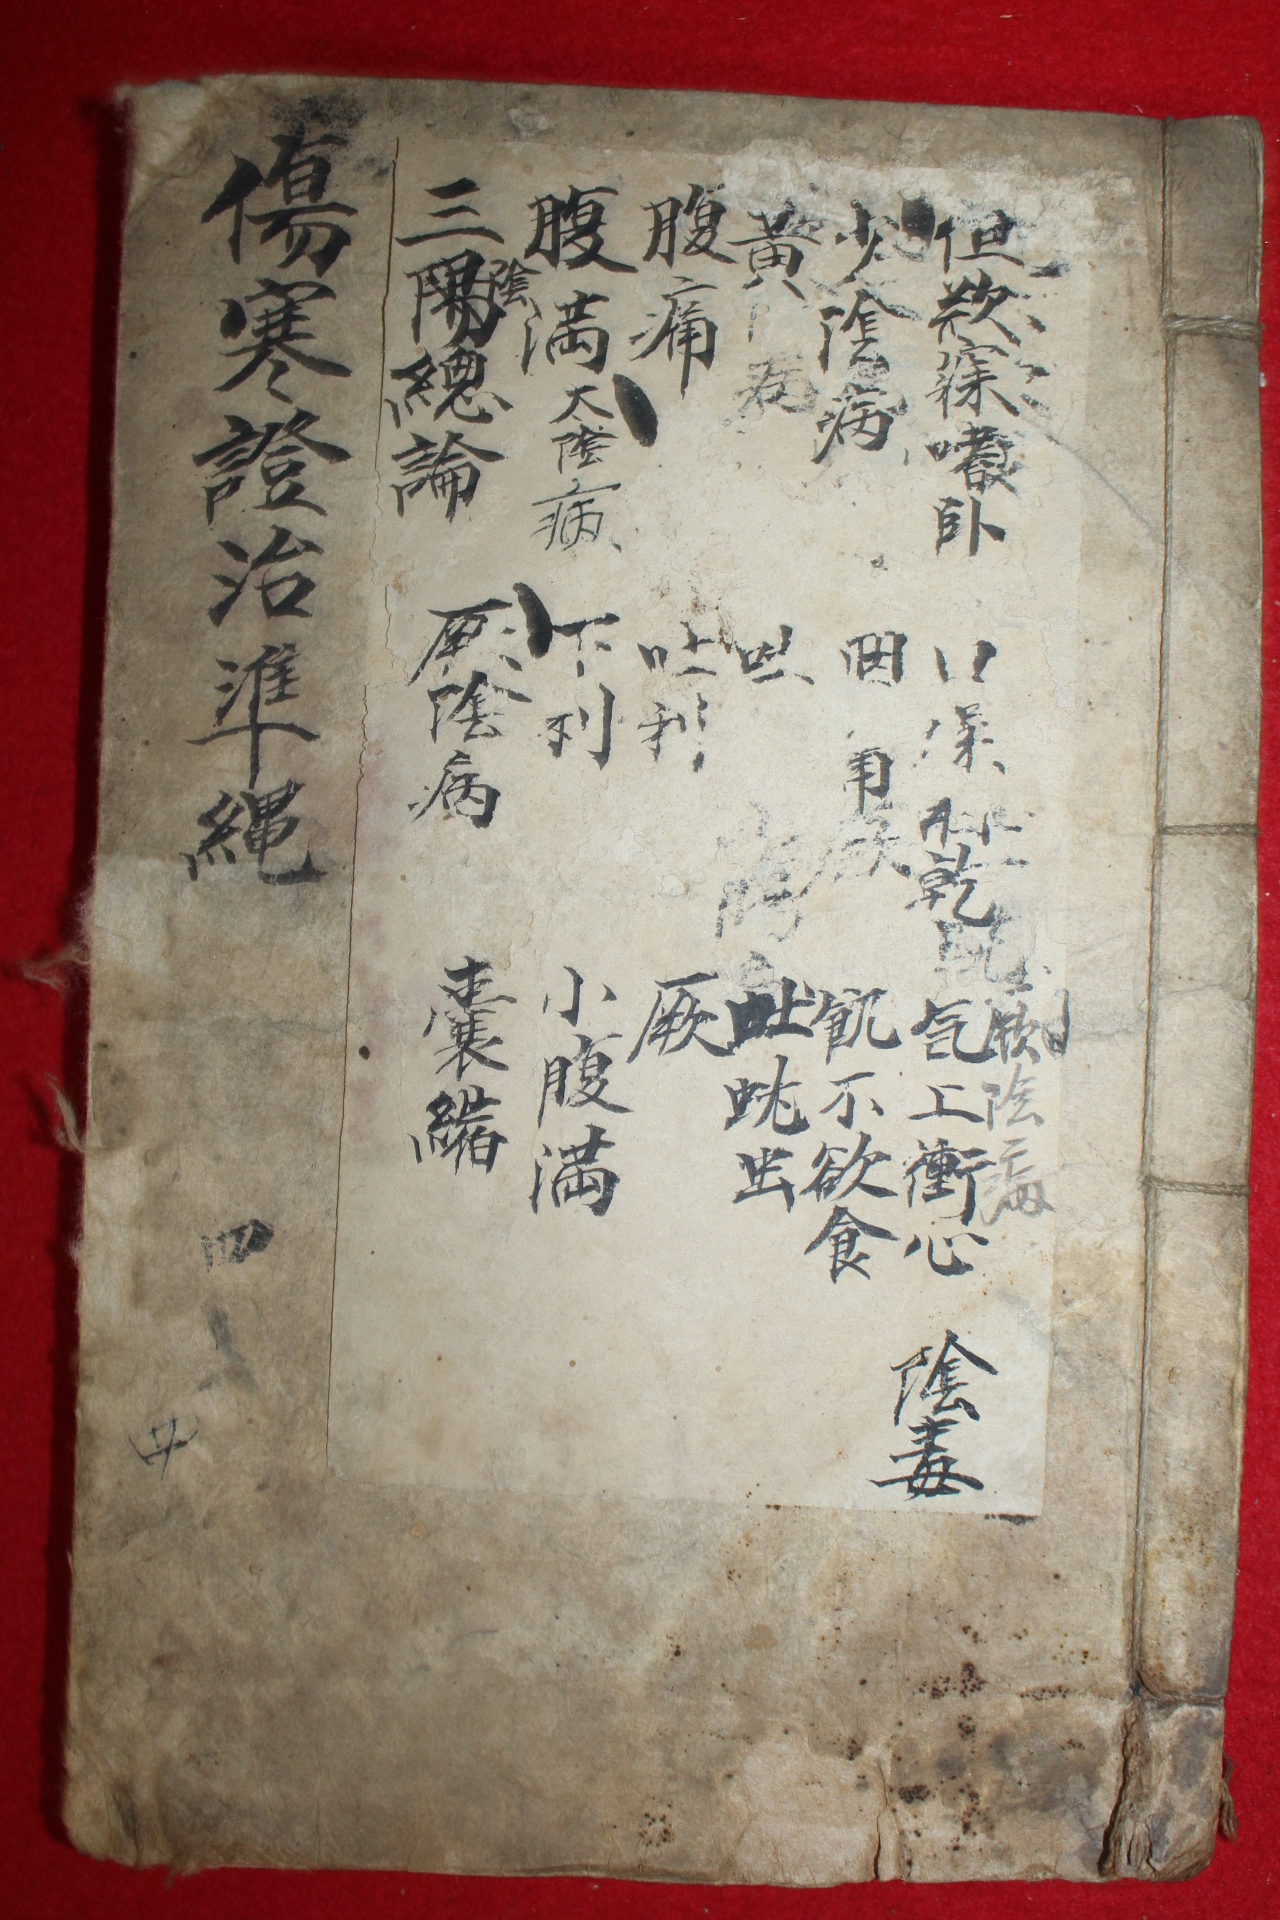 傷寒證治準繩
四
但欲寐嗜臥
少陰病
黃
病
腹痛
腹滿 太陰病
三陽陰總論
口燥
乾
咽
吐
吐利
下利
厥陰病
厥陰病
氣上衝心
飢不欲食
吐蛔出
厥
小腹滿
囊縮
陰毒